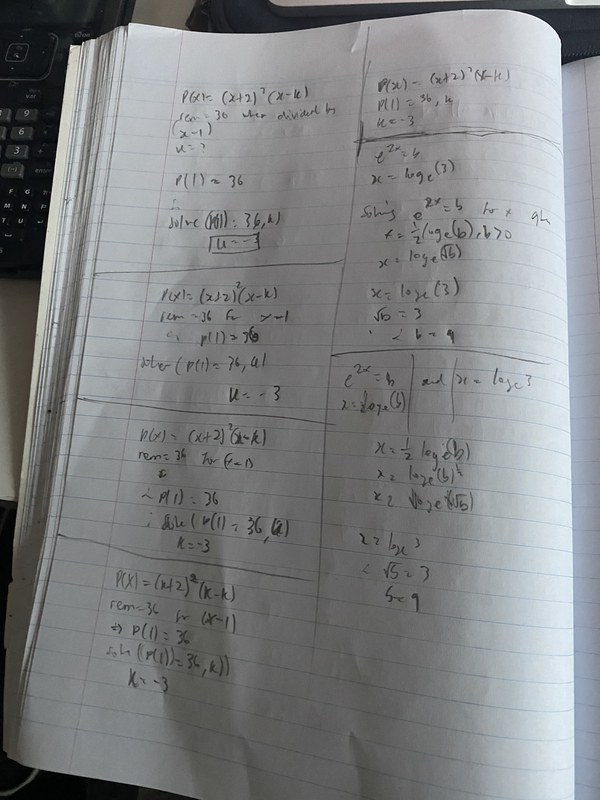 P(x) = (x+2)²(x-k)
rem = 36 when divided by
(x-1)
k = ?
P(1) = 36
solve (P(1) = 36, k)
k = -3
P(x) = (x+2)²(x-k)
rem = 36 for x-1
∴ p(1) = 36
solve (p(1) = 36, k)
k = -3
p(x) = (x+2)²(x-k)
rem = 36 for (x-1)
∴ P(1) = 36
: solve (p(1) = 36, k)
k = -3
P(x) = (x+2)²(x-k)
rem = 36 for (x-1)
⇒ P(1) = 36
solve (P(1) = 36, k))
k = -3
P(x) = (x+2)²(x-k)
P(1) = 36, k
k = -3
e^2x = b
x = loge(3)
solving e^2x = b for x
x = ½ loge(b), b>0
x = loge(√b)
x = loge(3)
√b = 3
∴ b = 9
e^2x = b and x = loge 3
x = ½loge(b)
x = ½ loge(b)
x = loge(b)^½
x = loge(√b)
x = loge 3
∴ √b = 3
b = 9